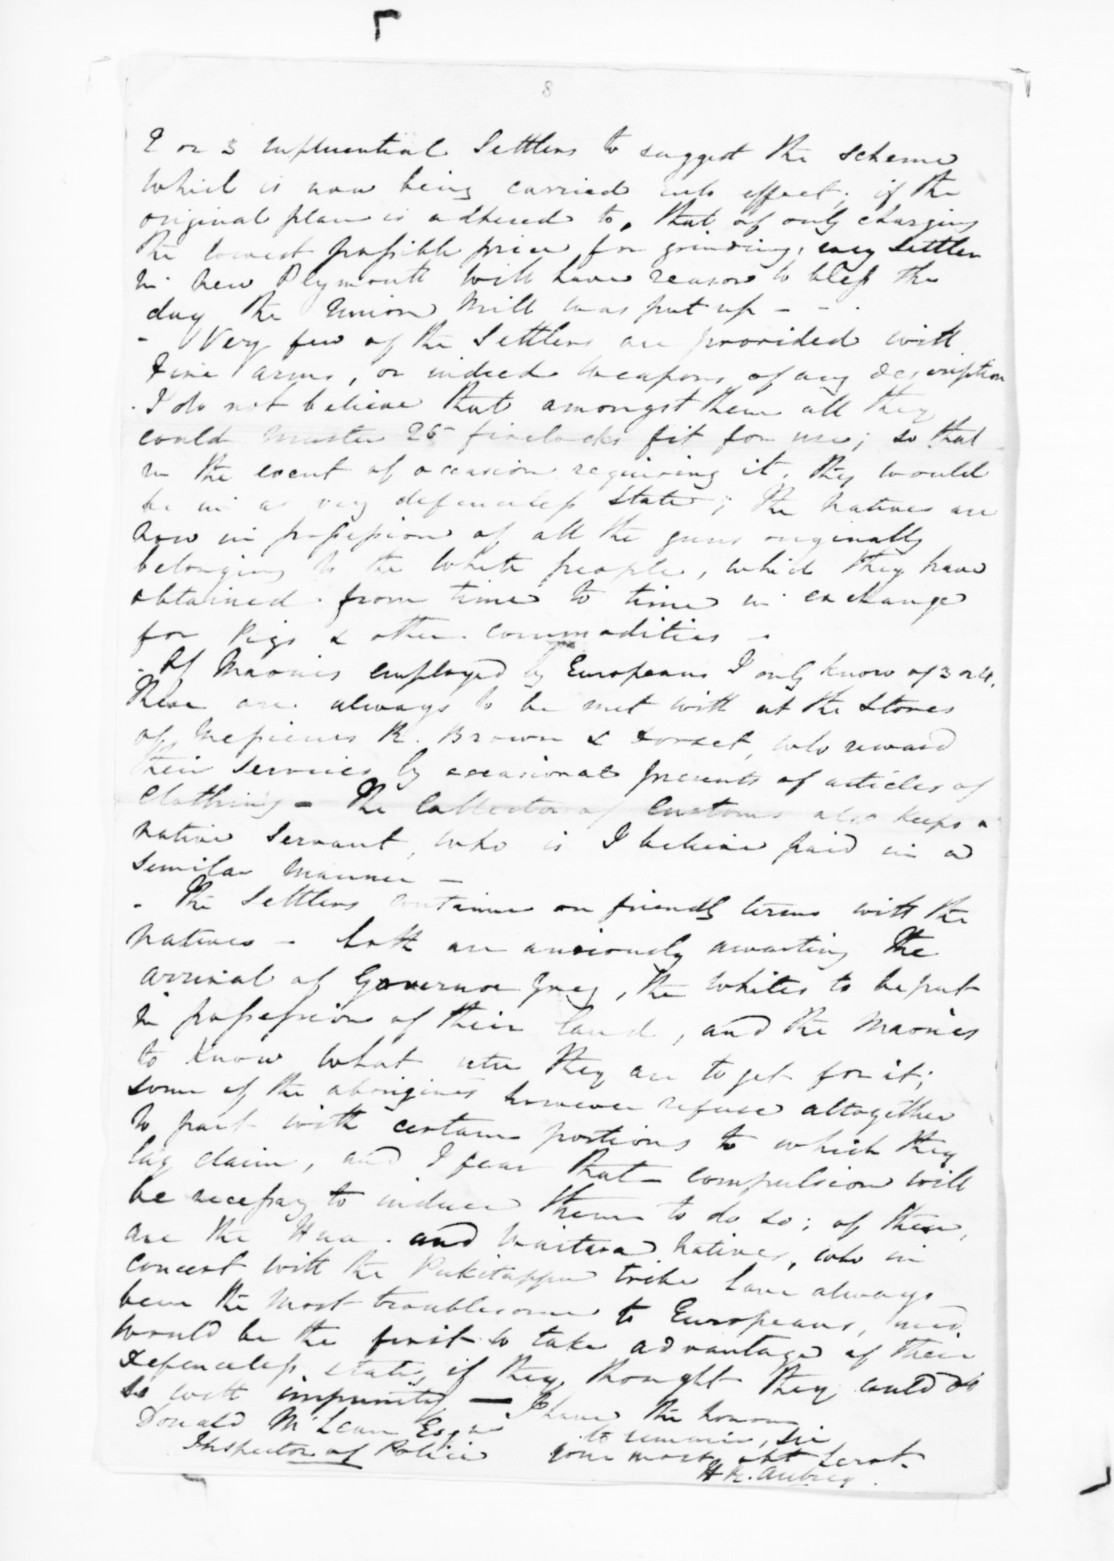 8
2 or 3 influential Settlers to suggest the scheme
which is now being carried into effect; if the
original plan is adhered to, that of only charging
the lowest possible price for grinding, every Settler
in New Plymouth will have reason to bless the
day the Union Mill was put up - - .
- Very few of the Settlers are provided with
Fire arms, or indeed weapons of any description
. I do not believe that amongst them all they
could muster 25 firelocks fit for use; so that
in the event of occasion requiring it, they would
be in a very defenceless state; the natives are
now in possession of all the guns originally
belonging to the white people, which they have
obtained from time to time in exchange
for Pigs & other commodities -
- Of Maories employed by Europeans I only know of 3 or 4.
These are always to be met with at the Stores
of Messieurs R. Brown & Dorset, who reward
their services by occasional presents of articles of
Clothing - The Collector of Customs also keeps a
native Servant, who is I believe paid in a
similar manner -
- The Settlers continue on friendly terms with the
natives - both are anxiously awaiting the
arrival of Governor Grey, the whites to be put
in possession of their land, and the Maories
to know what utu they are to get for it;
some of the aborigines however refuse altogether
to part with certain portions to which they
lay claim, and I fear that compulsion will
be necessary to induce them to do so; of these,
are the Hua and Waitera natives, who in
concert with the Pukitappu tribe have always
been the most troublesome to Europeans, and
would be the first to take advantage of their
defenceless state, if they thought they could do
so with impunity — I have the honor
to remain, Sir
Donald McLean Esqre
your most obt Servt.
Inspector of Police
H R. Aubrey.